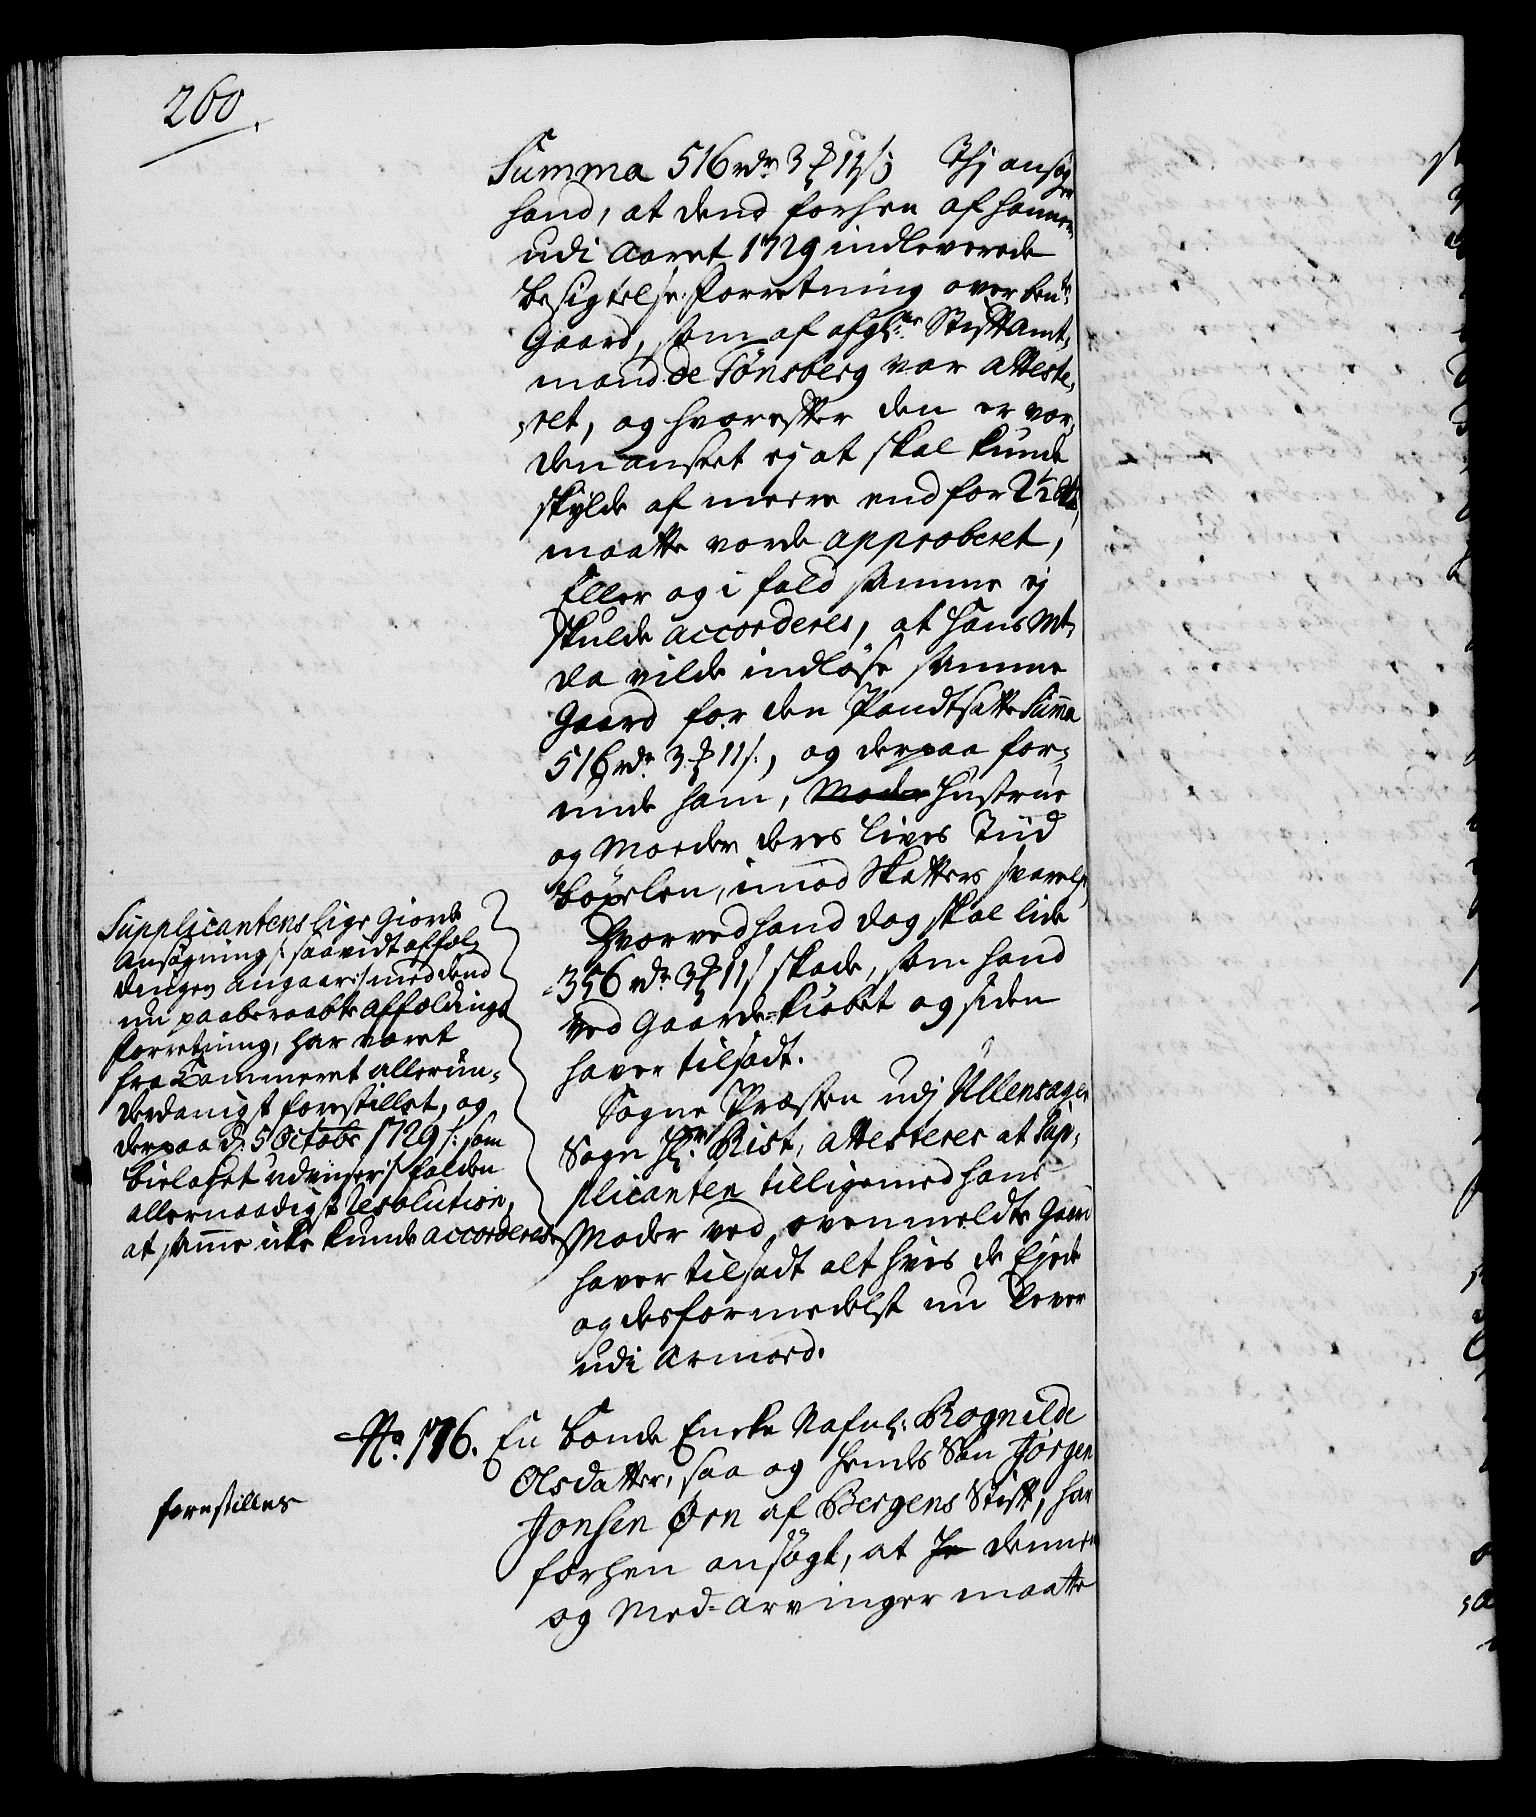 260.
Summa 516 rdr 3 ₰ 11 s; Thj ansøger
hand, at dend forhen af hannem
udi Aaret 1729 indleverede
besigtelse Forretning over bente
Gaard, som af afgl: Stiftamt,
mand de Tönsberg var atteste,
ret, og hvorefter den er vor,
den anseet ej at skal kunde
skylde af meere end for 2½
maatte vorde approberet,
Eller og i fald samme ej
skulde accorderes, at Hans Mt,
da vilde indløse samme
Gaard for den Pandtsatte Summa
516 rdr. 3 ₰ 11 s., og derpaa for,
unde ham, Moder Hustrue
og Moeder deres Lives Tiid
böxelen, imod Skatters svarelse,
Hvorved hand dog skal lide
356 rdr 3 ₰ 11 s skade, som hand
ved Gaarde-kiøbet og siden
haver tilsadt.
Sogne Præsten udj Ullensager
Sogn Hr: Rist, attesterer at Sup,
plicanten tilligemed hans
Moder ved ovenmeldte Gaard
haver tilsadt alt hvis de Ejede
og desformedelst nu lever
udi Armoed.
Supplicantens lige Giorde
Ansøgning /: saavidt affæl,
dingen angaar :/ med dend
nu paaberaabte Affældings
Forretning, har været
fra Cammeret allerun,
derdanigst forestillet, og
derpaa d. 5 Octobr 1729 /: som
bielaget udviser :/ falden
allernaadigst Resolution,
at samme icke kunde accorderes
No. 176. En bonde Encke Nafnl: Rognilde
Olsdatter, saa og hendes Søn Jørgen
Jonsen Ørn af Bergens Stift, har
forhen ansøgt, at denne
og Med-arvinger maatte
forestilles